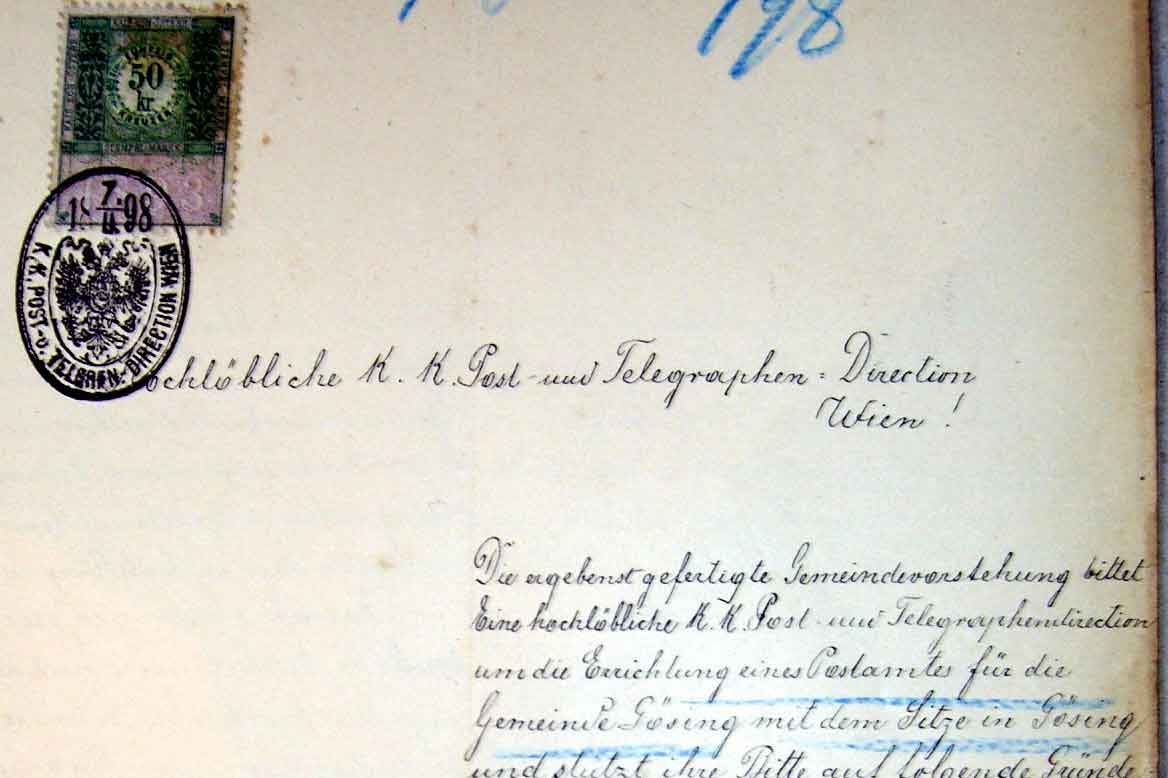 198
50
kr
KREUZER
STEMPEL MARKE
7.
18 98
4.
K. K. POST- u. TELEGRFN.-DIRECTION WIEN
ochlöbliche K. K. Post- und Telegraphen = Direction
Wien !
Die ergebenst gefertigte Gemeindevorstehung bittet
Eine hochlöbliche K. K. Post- und Telegraphendirection
um die Errichtung eines Postamtes für die
Gemeinde Gösing mit dem Sitze in Gösing
und stützt ihre Bitte auf folgende Gründe